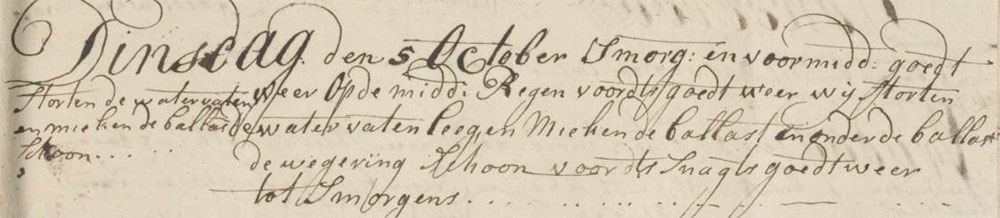 Dinsdag den 5 October Smorg: en voormidd: goedt
weer Op de midd: Regen voordts goedt weer wij storten
de watervaten leegen Mieken de ballast en onder de ballast
de wegering Schoon voordts Snagts goedt weer
tot Smorgens . . . . . . . .
Storten de watervaten
en mieken de ballast
schoon . . . .